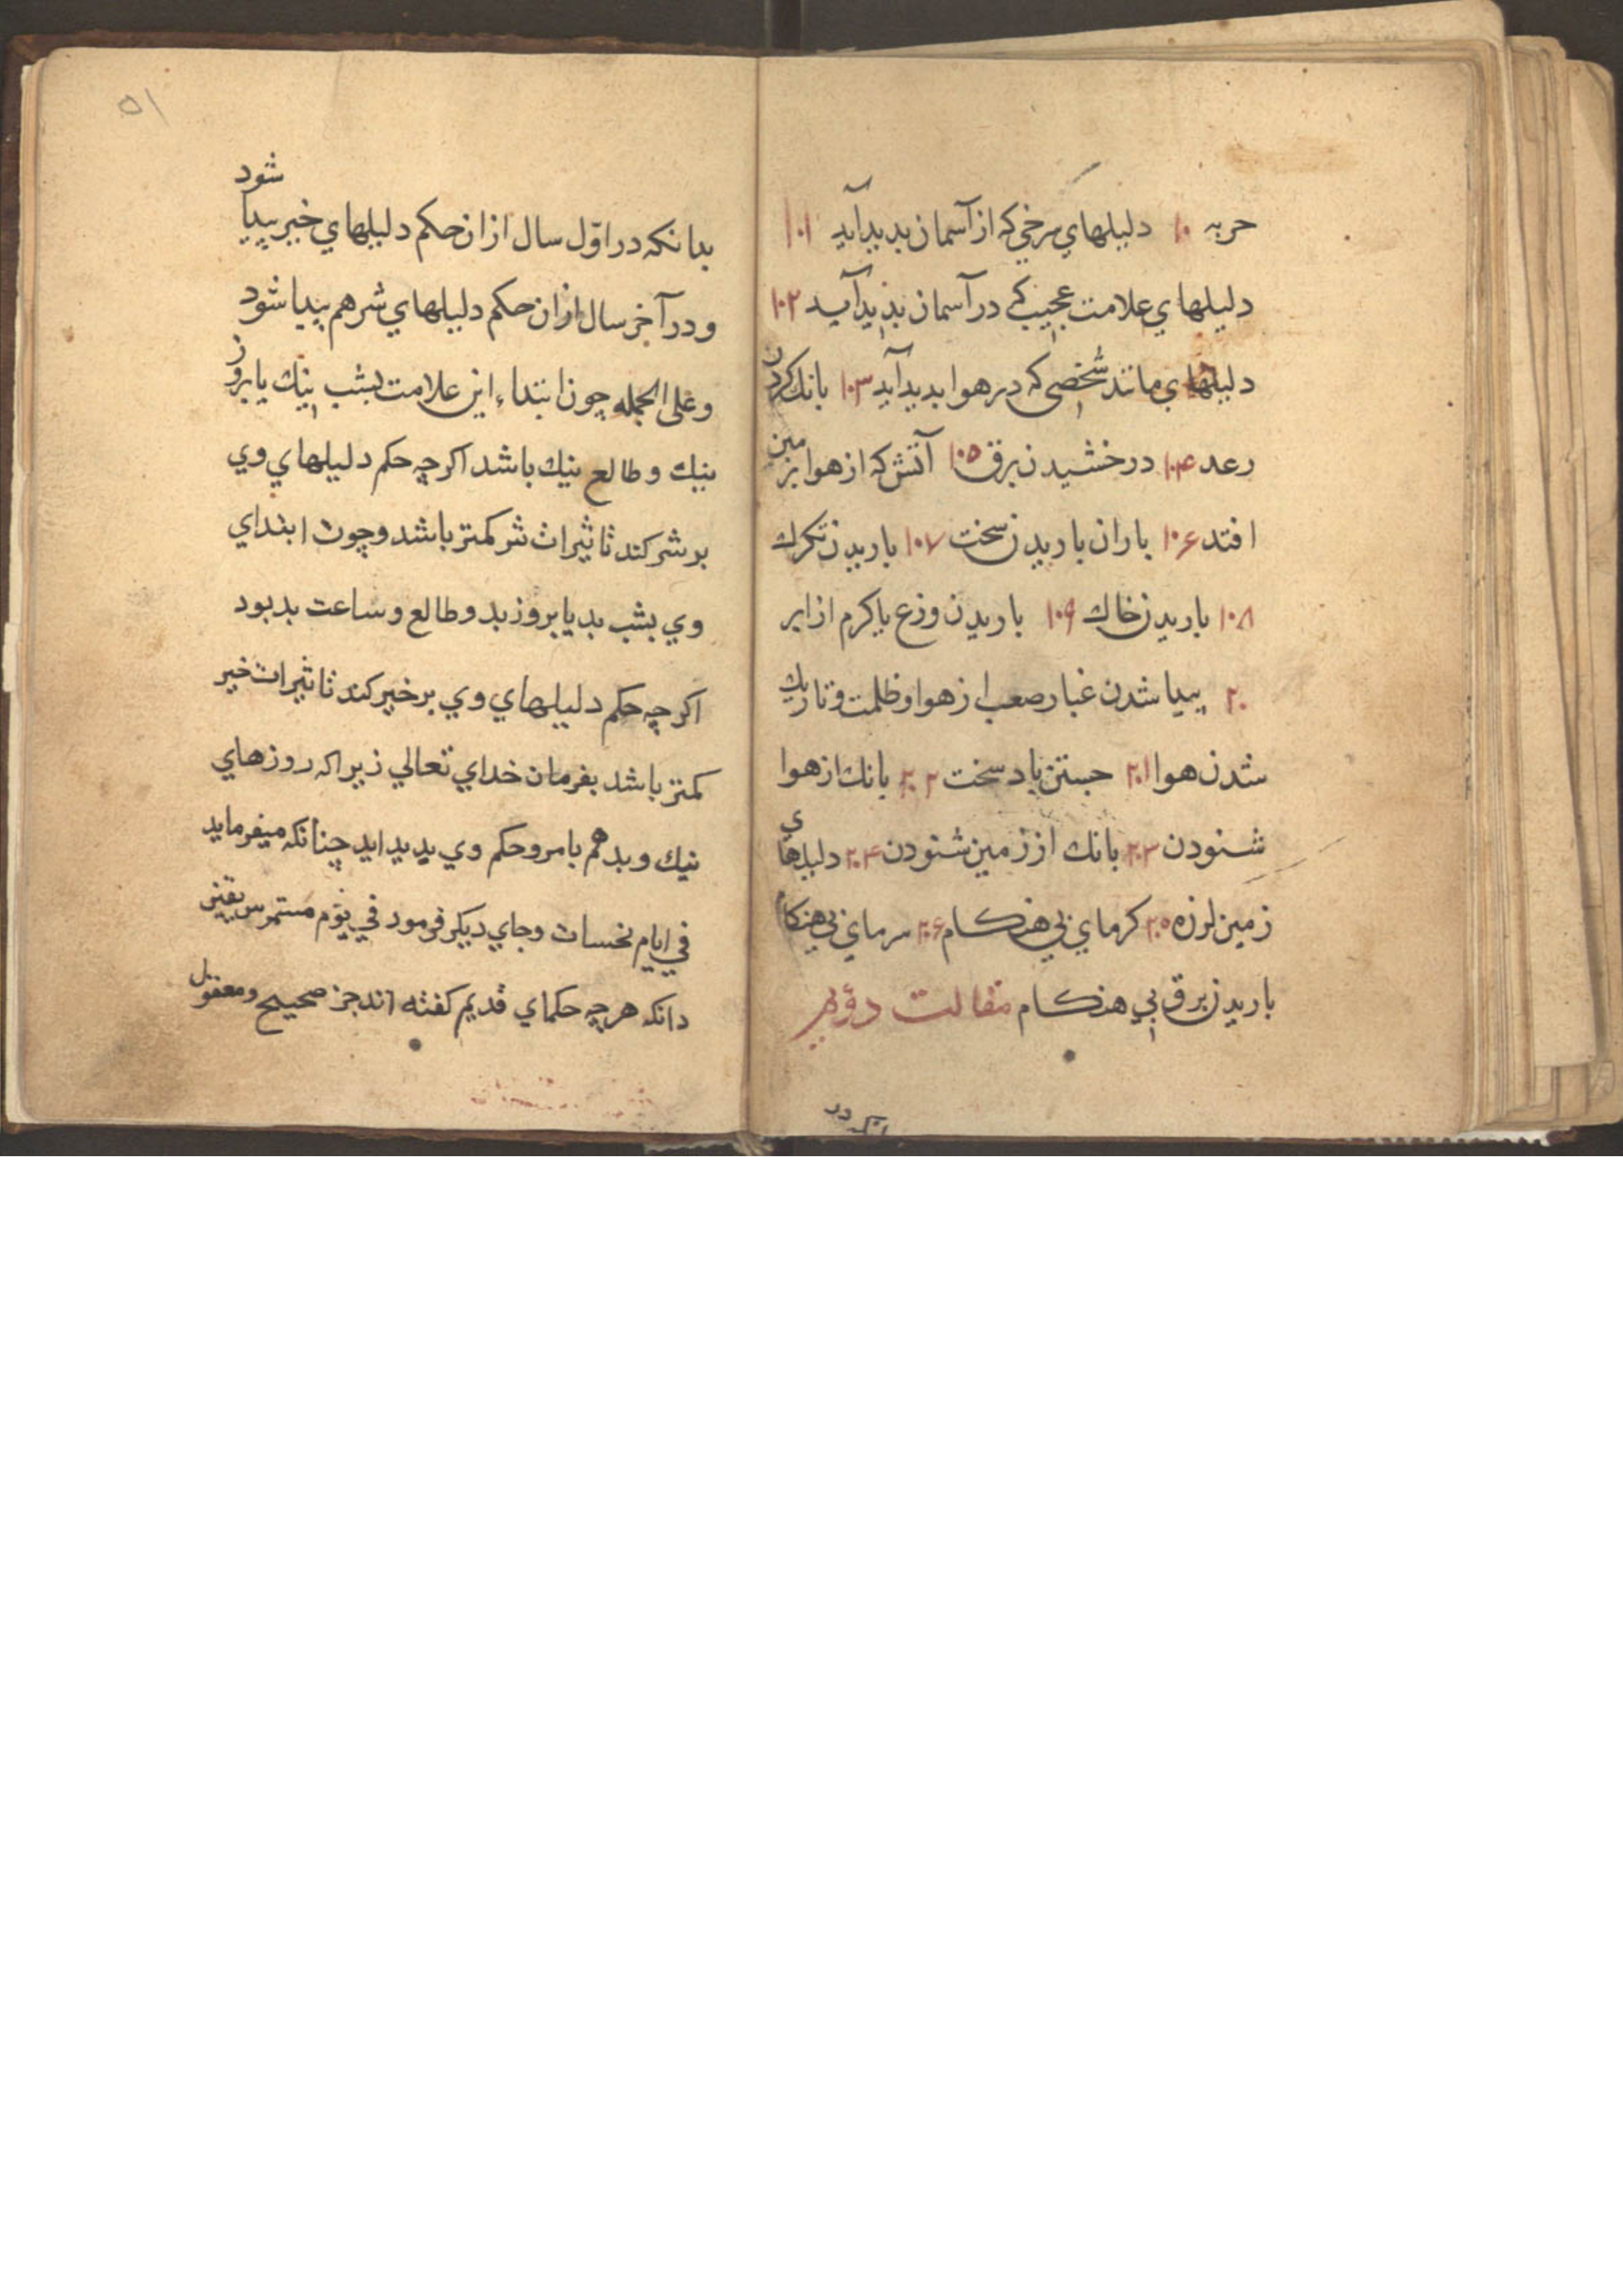 حربه ۱۰ دلیلهاي سرخي که از آسمان بدید آید ۱۰۱
دلیلهاي علامت عجیب که در آسمان بدید آید ۱۰۲
دلیلهاي مانند شخصي که در هوا بدید آید ۱۰۳ بانك کردن
رعد ۱۰۴ درخشیدن برق ۱۰۵ آتش که از هوا بر زمین
افتد ۱۰۶ باران باریدن سخت ۱۰۷ باریدن تکرك
۱۰۸ باریدن خاك ۱۰۹ باریدن وزع یا کرم از ابر
۲۰ پیدا شدن غبار صعب از هوا و ظلمت و تاریك
شدن هوا ۲۰۱ جستن باد سخت ۲۰۲ بانك از هوا
شنودن ۲۰۳ بانك از زمین شنودن ۲۰۴ دلیلهاي
زمین لرزه ۲۰۵ کرماي بي هنکام ۲۰۶ سرماي بي هنکام
باریدن برق بي هنکام مقالت دوّم
۵۱
بدانکه در اوّل سال از ان حکم دلیلهاي خیر پیدا شود
و در آخر سال از ان حکم دلیلهاي شر هم پیدا شود
و علی الجمله چون ابتداء این علامت بشب نیك یا بروز
نیك و طالع نیك باشد اکر چه حکم دلیلهاي وي
بر شر کند تاثیرات شر کمتر باشد و چون ابتداي
وي بشب بد یا بروز بد و طالع و ساعت بد بود
اکر چه حکم دلیلهاي وي بر خیر کند تاثیرات خیر
کمتر باشد بفرمان خداي تعالي زیرا که روزهاي
نیك و بد هم بامر و حکم وي پدید اید چنانکه میفرماید
في ایام نحسات و جاي دیکر فرمود في یوم مستمر پس یقین
دانکه هر چه حکماي قدیم کفته اند جز صحیح و معقول